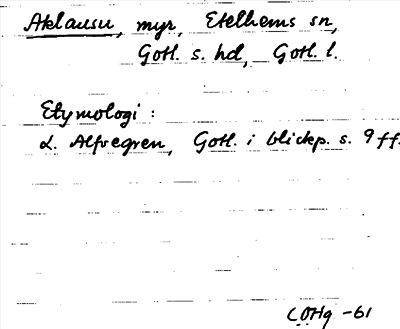 Aklausu, myr, Etelhems sn,
Gotl. s. hd, Gotl. l.
Etymologi :
L. Alfvegren, Gotl. i blickp. s. 9 ff.
CÖHg -61